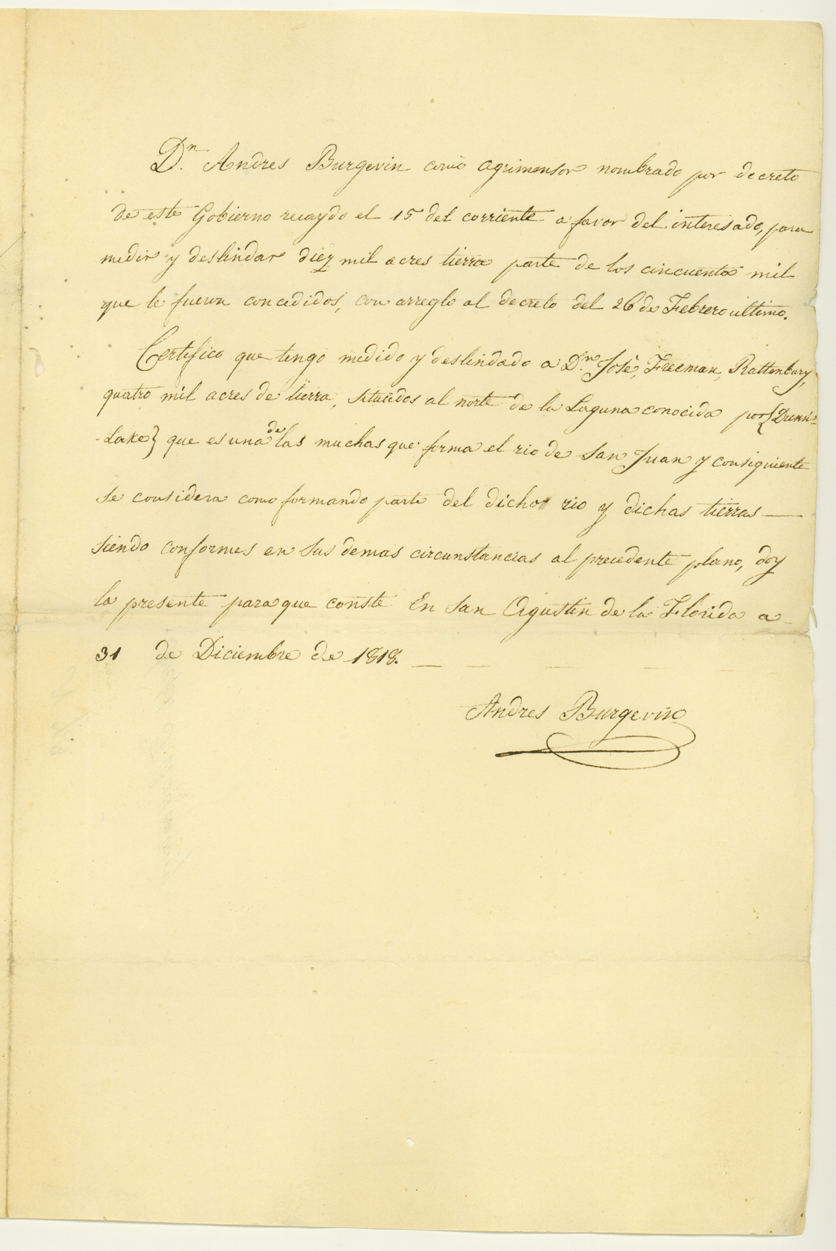 Dn. Andres Burgevin como agrimensor nombrado por decreto
de este Gobierno recaydo el 15 del corriente a favor del interesado, para
medir y deslindar diez mil acres tierra parte de los cincuenta mil
que le fueron concedidos, con arreglo al decreto del 26 de Febrero ultimo.
Certifico que tengo medido y deslindado a Dn. José, Freeman, Rattenbury,
quatro mil acres de tierra, situados al norte de la Laguna conocida por {Dunn-
-Lake} que es una de las muchas que forma el rio de San Juan y consiguiente
se considera como formando parte del dicho rio y dichas tierras —
siendo conformes en sus demas circunstancias al precedente plano, doy
la presente para que conste En San Agustin de la Florida a
31 de Diciembre de 1818. — — — —
Andres Burgevin